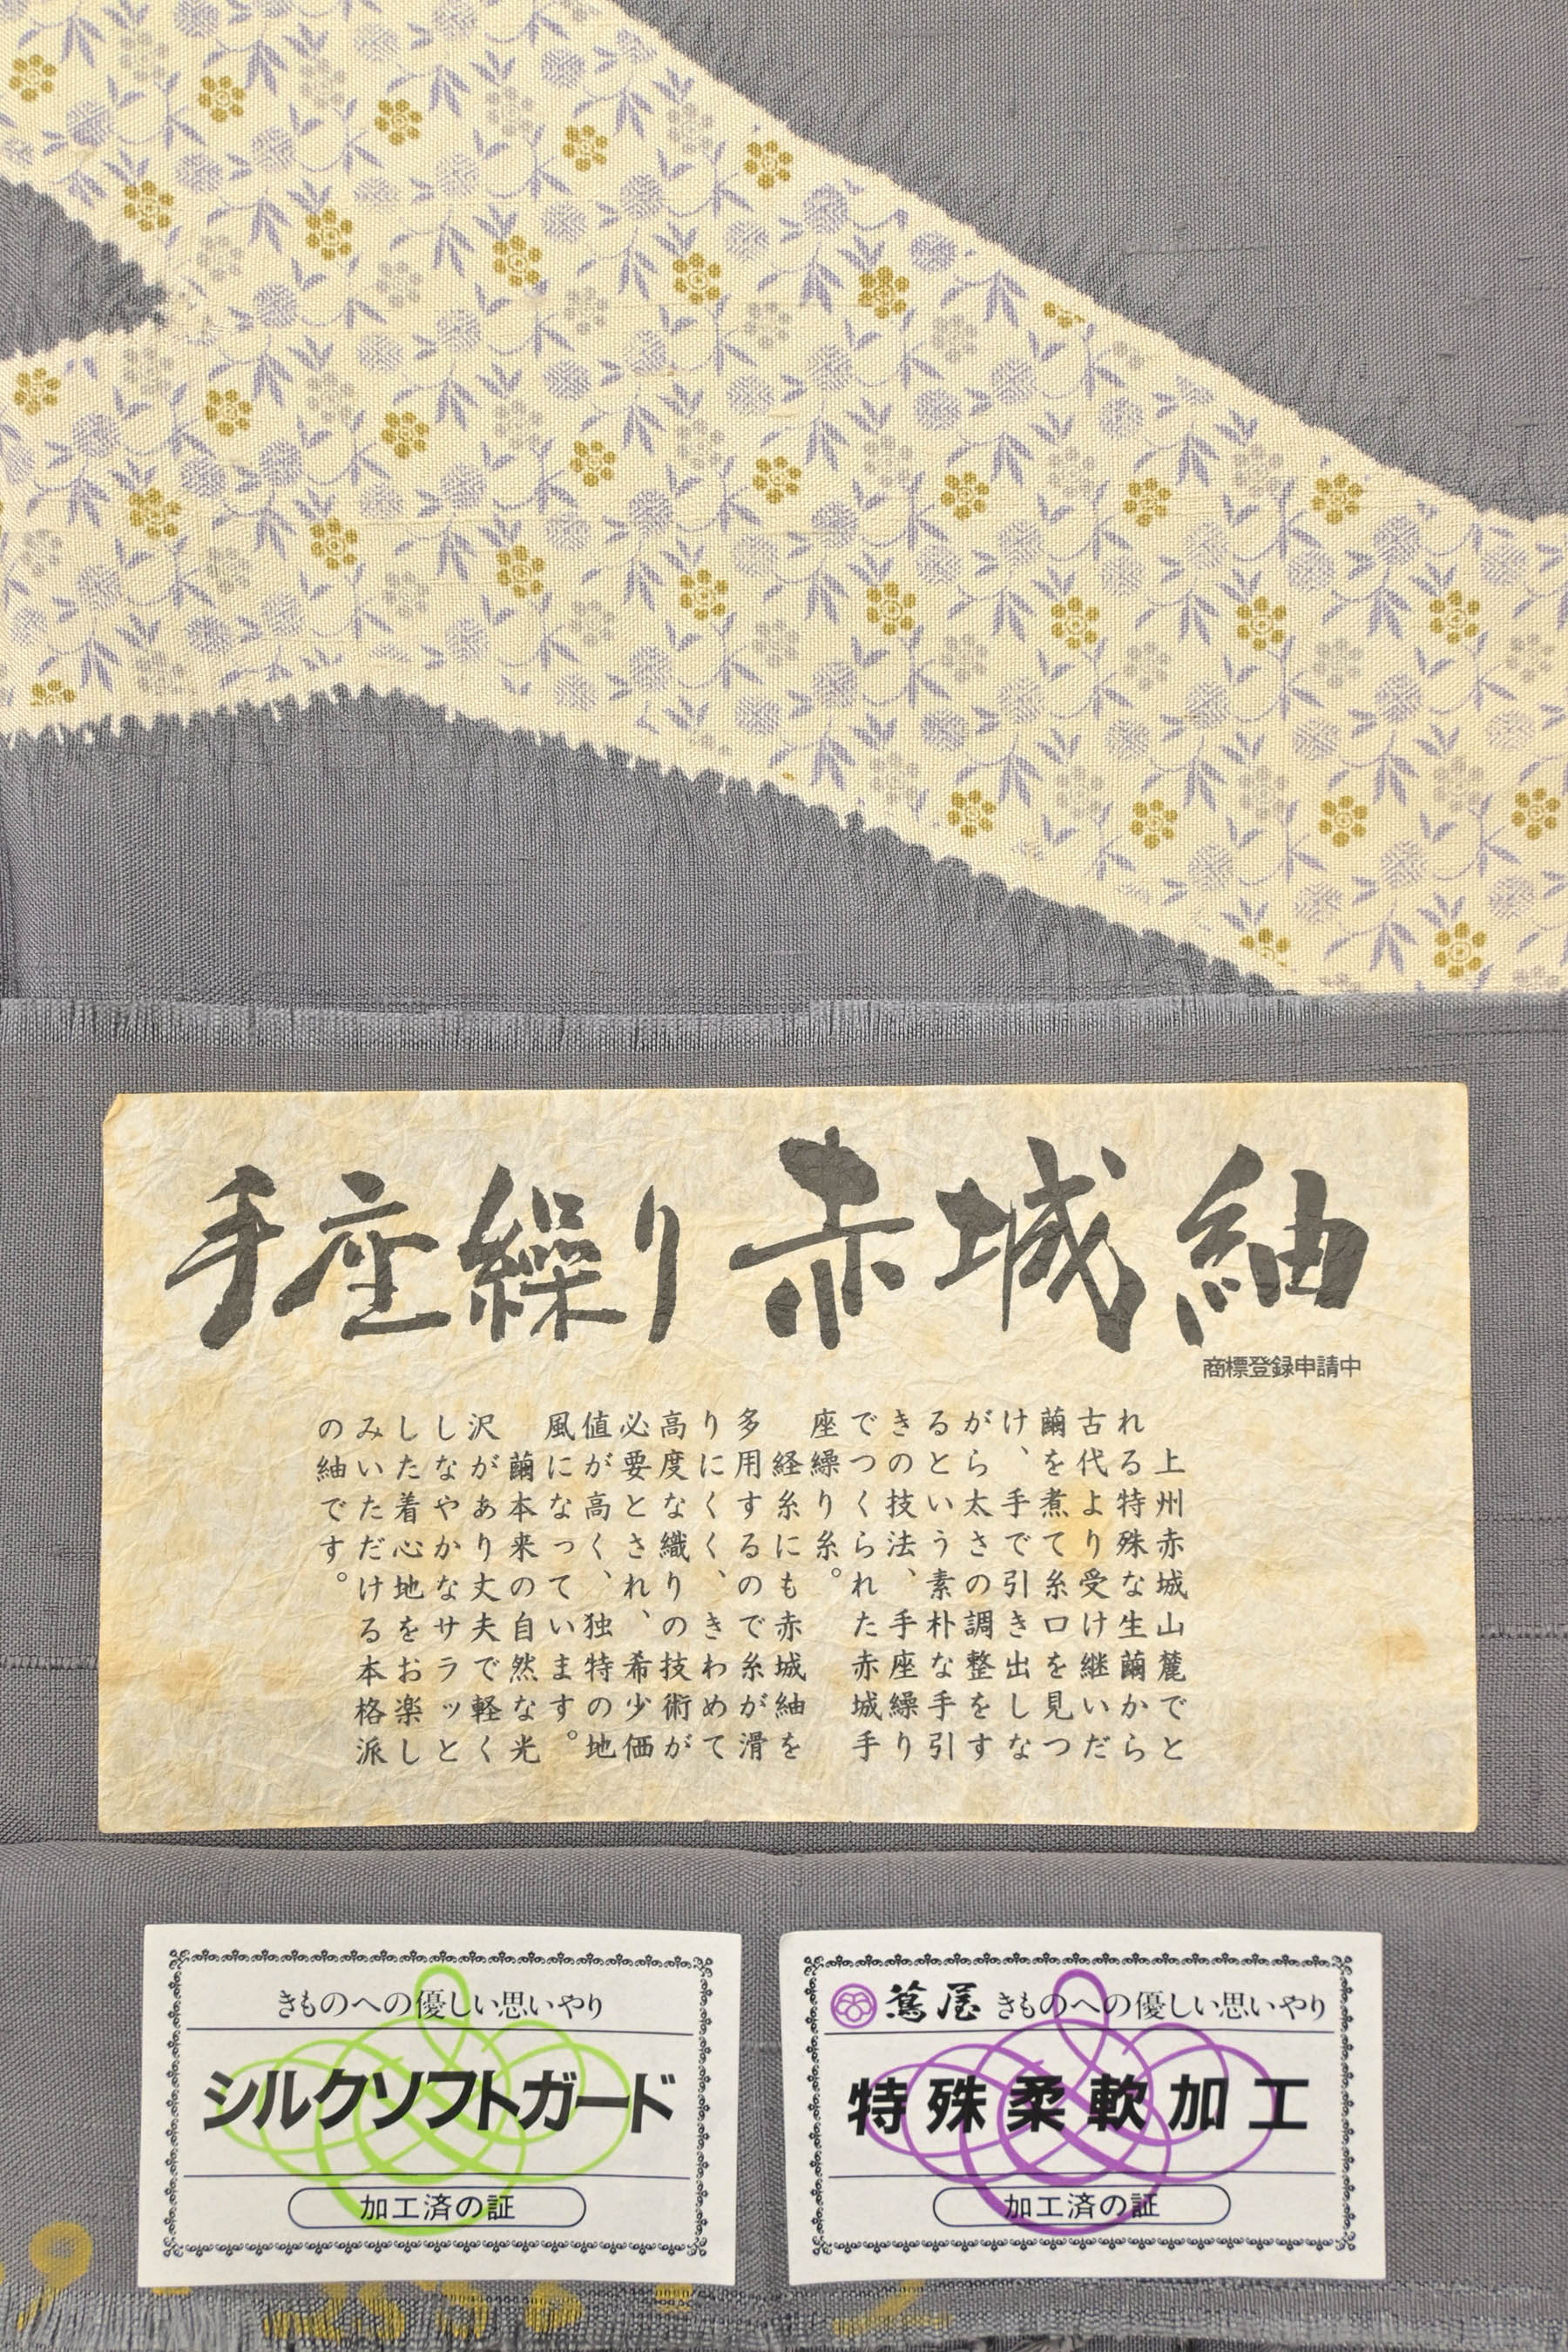 手座繰り 赤城紬
商標登録申請中
上州赤城山麓でと
れる特殊な生繭から
古代より受け継いだ
繭を煮て糸口を見つ
け、手で引き出しな
がら太さの調整をす
るという素朴な手引
きの技法、手座繰り
でつくられた赤城手
座繰り糸。
経糸にも赤城紬を
多用するので糸が滑
りにくく、きわめて
高度な織りの技術が
必要とされ、希少価
値が高く、独特の地
風になっています。
繭本来の自然な光
沢があり丈夫で軽く
しなやかなサラッと
した着心地をお楽し
みいただける本格派
の紬です。
きものへの優しい思いやり
シルクソフトガード
加工済の証
蔦屋 きものへの優しい思いやり
特殊柔軟加工
加工済の証